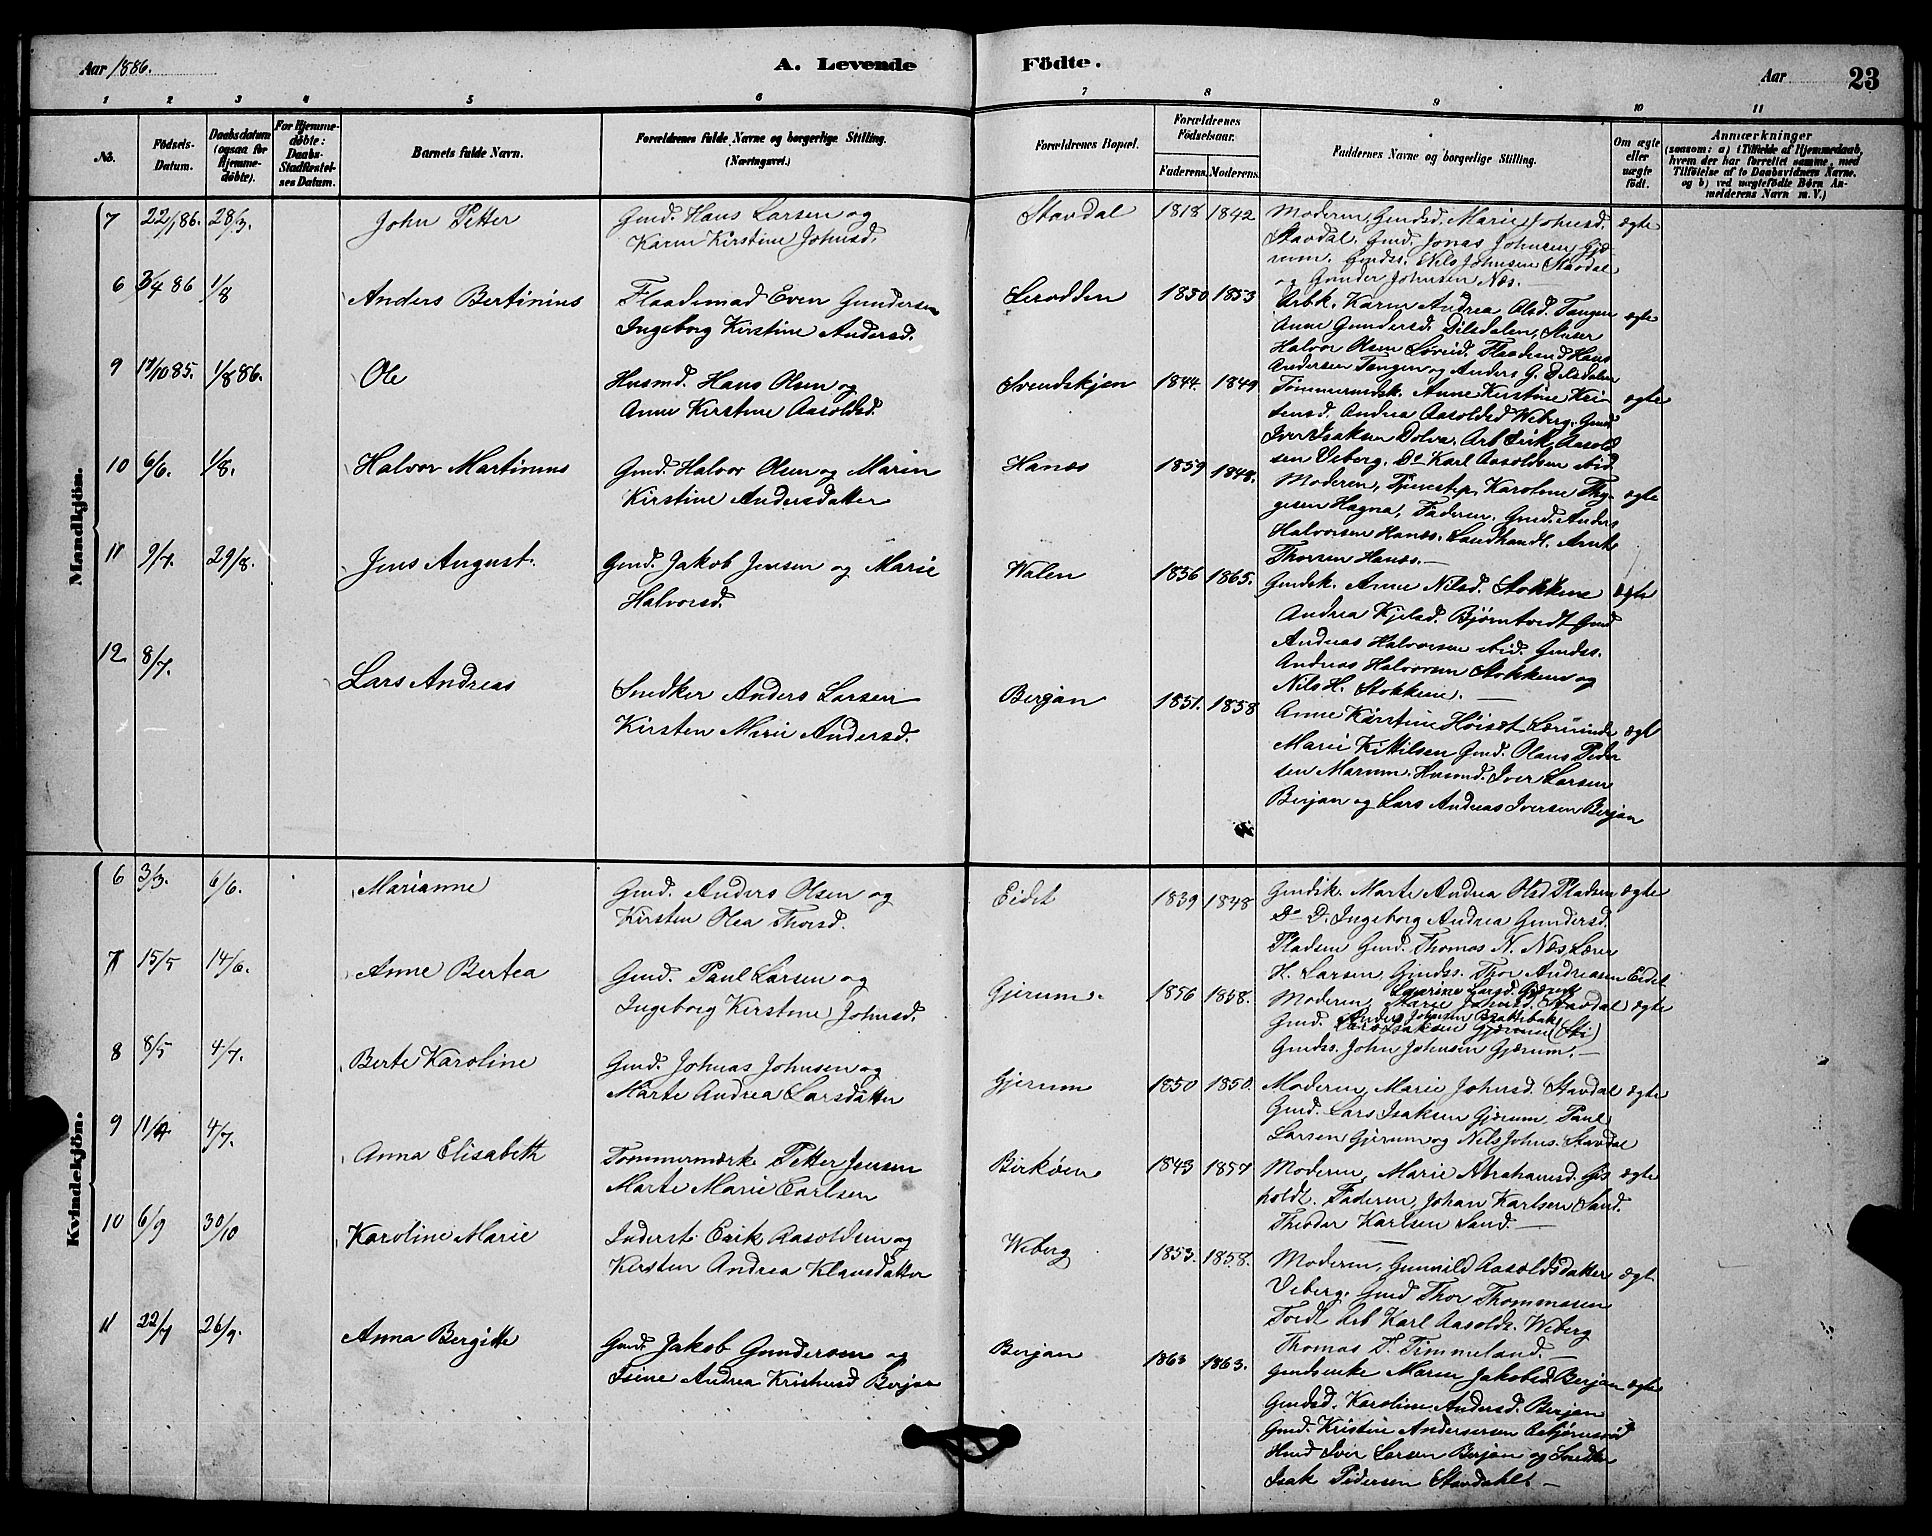 Aar 1886.
A. Levende Födte.
Aar 23
1 2 3 4 5 6 7 8 9 10 11
No.
Födsels-Datum.
Daabsdatum (ogsaa for Hjemmedöbte).
For Hjemmedöbte: Daabs-Stadfæstelses Datum.
Barnets fulde Navn.
Forældrenes fulde Navne og borgerlige Stilling. (Næringsvei.)
Forældrenes Bopæl.
Forældrenes Födselsaar.
Faderens. Moderens.
Faddernes Navne og borgerlige Stilling.
Om ægte eller uægte födt.
Anmærkninger
(saasom: a) i Tilfælde af Hjemmedaab,
hvem der har forrettet samme, med
Tilföielse af to Daabsvidners Navne.
og b) ved uægtefödte Börn Anmelderens Navn m. V.)
Mandkjön.
7 22/1 86. 28/3. John Petter
Gmd. Hans Larsen og
Karen Kirstine Johnsd.
Stavdal 1818 1842
Moderen, Gmdsd. Marie Johnsd.
Stavdal. Gmd. Jonas Johnsen Gje-
rum. Gmdss. Nils Johnsen Stavdal
og Gunder Johnsen Næs.
ægte
6 3/4 86 1/8 Anders Bertinius
Flaademad Even Gundersen
Ingeborg Kirstine Andersd.
1850 1853
Arbk. Karen Andrea Olsd. Tangen
Anne Gundersd. Dilsdalen,
Halvor Olsen Flaademd Hans
Andersen Tangen og Anders G. Dilsdalen
ægte
9 1/8 86. Ole
Husmd. Hans Olsen og
Anne Kirstine Aasoldsd.
Svendskjen 1844. 1849
Tømmermdsk. Anne Kirstine Kri-
stensd. Andrea Aasoldsd Weberg. Gmd
Iver Isaksen Dolva. Arb Erik Aasold-
sen Veberg. Do Karl Aasoldsen
ægte
10 6/6. 1/8. Halvor Martinius
Gmd. Halvor Olsen og Maren
Kirstine Andersdatter
Hanæs 1859 1848.
Moderen, Tjenestep. Karoline Thy-
gesen Hagna, Faderen. Gmd. Anders
Halvorsen Hanæs. Landhandl.
Thorsen Hanæs.
ægte
11 9/7. 29/8. Jens August.
Gmd. Jakob Jensen og Marie
Halvorsd.
Walen 1856 1865.
Gmdsk. Anne Nilsd. Stokkene
Andrea Kjelsd. Bjørntvedt Gmd
Andreas Halvorsen Gmdss.
Andreas Halvorsen Stokkene og
Nils H. Stokkene.
ægte
12 8/7. Lars Andreas
Snedker Anders Larsen
Kirsten Marie Andersd.
Berjan 1851. 1858
Anne Kirstine Høiset Lærerinde
Marie Kittilsen Gmd. Olaus Peder-
sen Marum. Husmd. Iver Larsen
Berjan og Lars Andreas Iversen Berjan
ægt
Kvindekjön.
6 3/3. 6/6. Marianne
Gmd. Anders Olsen og
Kirsten Olea Thorsd.
Eidet 1839 1848
Gmdsk. Marte Andrea Olsd Pladsen
Do D. Ingeborg Andrea Gundersd.
Pladsen Gmd. Thomas N. Næs Lærer
H. Larsen, Gmdss. Thor Andreasen Eidet
ægte
7 15/5 14/6. Anne Bertea
Gmd. Paul Larsen og
Ingeborg Kirstine Johnsd.
Gjerum. 1856 1858.
Moderen, Marie Johnsd. Stavdal
Gmd. Lars Isaksen Gjærum
Gmdss. John Johnsen Gjærum.
ægte
8 8/5 4/7. Berte Karoline
Gmd. Johnas Johnsen og
Marte Andrea Larsdatter
Gjerum 1850 1850.
Moderen, Marie Johnsd. Stavdal
Gmd. Lars Isaksen Gjærum, Paul
Larsen Gjerum og Nils Johns. Stavdal
ægte
9 4/7. Anna Elisabeth
Tømmermk. Petter Jensen
Marte Marie Carlsen
Birkøen 1843 1857
Moderen, Marie Abrahamsd. Gis-
holdt. Faderen, Johan Karlsen Sand.
Theodor Karlsen Sand.
ægte
10 6/9 30/10 Karoline Marie
Inderst. Erik Aasoldsen og
Kirsten Andrea Klausdatter
Weberg 1853. 1858.
Moderen, Gunnild Aasoldsdatter
Veberg. Gmd Thor Thommasen
Tvedt Arb Karl Aasolds. Weberg
Thomas T. Timmeland.
ægt
11 22/7 26/9. Anna Bergitte
Gmd. Jakob Gundersen og
Isene Andrea Kristensd Berjan
Berjan 1863 1863.
Gmdsenke Maren Jakobsd Berjan
Gmdsd. Karoline Andersd. Berjan
Gmd. Kristen Andersen
Husmd Iver Larsen Berjan og Snedker
Isak Pedersen Stavdahl.
ægte